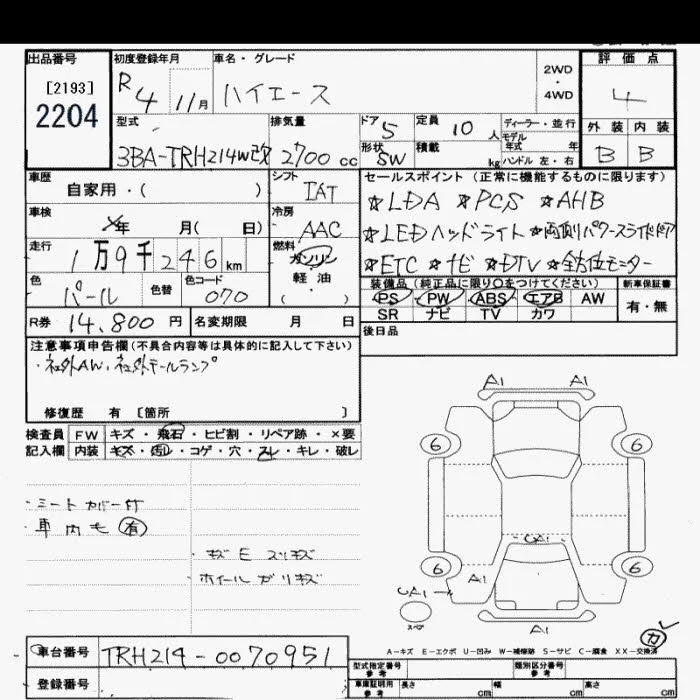 出品番号
[2193]
2204
初度登録年月
R 4 11月
車名・グレード
ハイエース
2WD
・
4WD
評価点
4
外装 内装
B B
型式
3BA-TRH214W改
排気量
2700 cc
ドア 5
形状 SW
定員 10 人
積載 kg
ディーラー・並行
モデル年式 年
ハンドル 左・右
車歴
自家用・( )
シフト
IAT
セールスポイント (正常に機能するものに限ります)
☆LDA ☆PCS ☆AHB
☆LEDヘッドライト ☆両側パワースライドドア
☆ETC ☆ナビ ☆DTV ☆全方位モニター
車検
年 月( 日)
冷房
AAC
走行
1万9千246km
燃料
ガソリン
軽油
( ・ )
色
パール
色替
色コード
070
装備品 (純正品に限り○をつけてください)
PS PW ABS エアB AW
SR ナビ TV カワ
新車保証書
有・無
R券 14,800 円
名変期限 月 日
後日品
注意事項申告欄 (不具合内容等は具体的に記入して下さい)
・社外AW、社外テールランプ
修復歴 有 [箇所 ]
検査員記入欄
FW キズ・飛石・ヒビ割・リペア跡・×要
内装 キズ・汚レ・コゲ・穴・スレ・キレ・破レ
・シートカバー付
・車内も有
・キズE スリキズ
ホイールガリキズ
A1 A1
6 6
UA1
6 6
A1
UA1
スペア
A1
カ
A-キズ E-エクボ U-凹み W-補修跡 S-サビ C-腐食 XX-交換済
車台番号 TRH214-0070951
登録番号
型式指定番号 参考
類別区分番号 参考
車庫証明用 参考
長さ cm 幅 cm 高さ cm